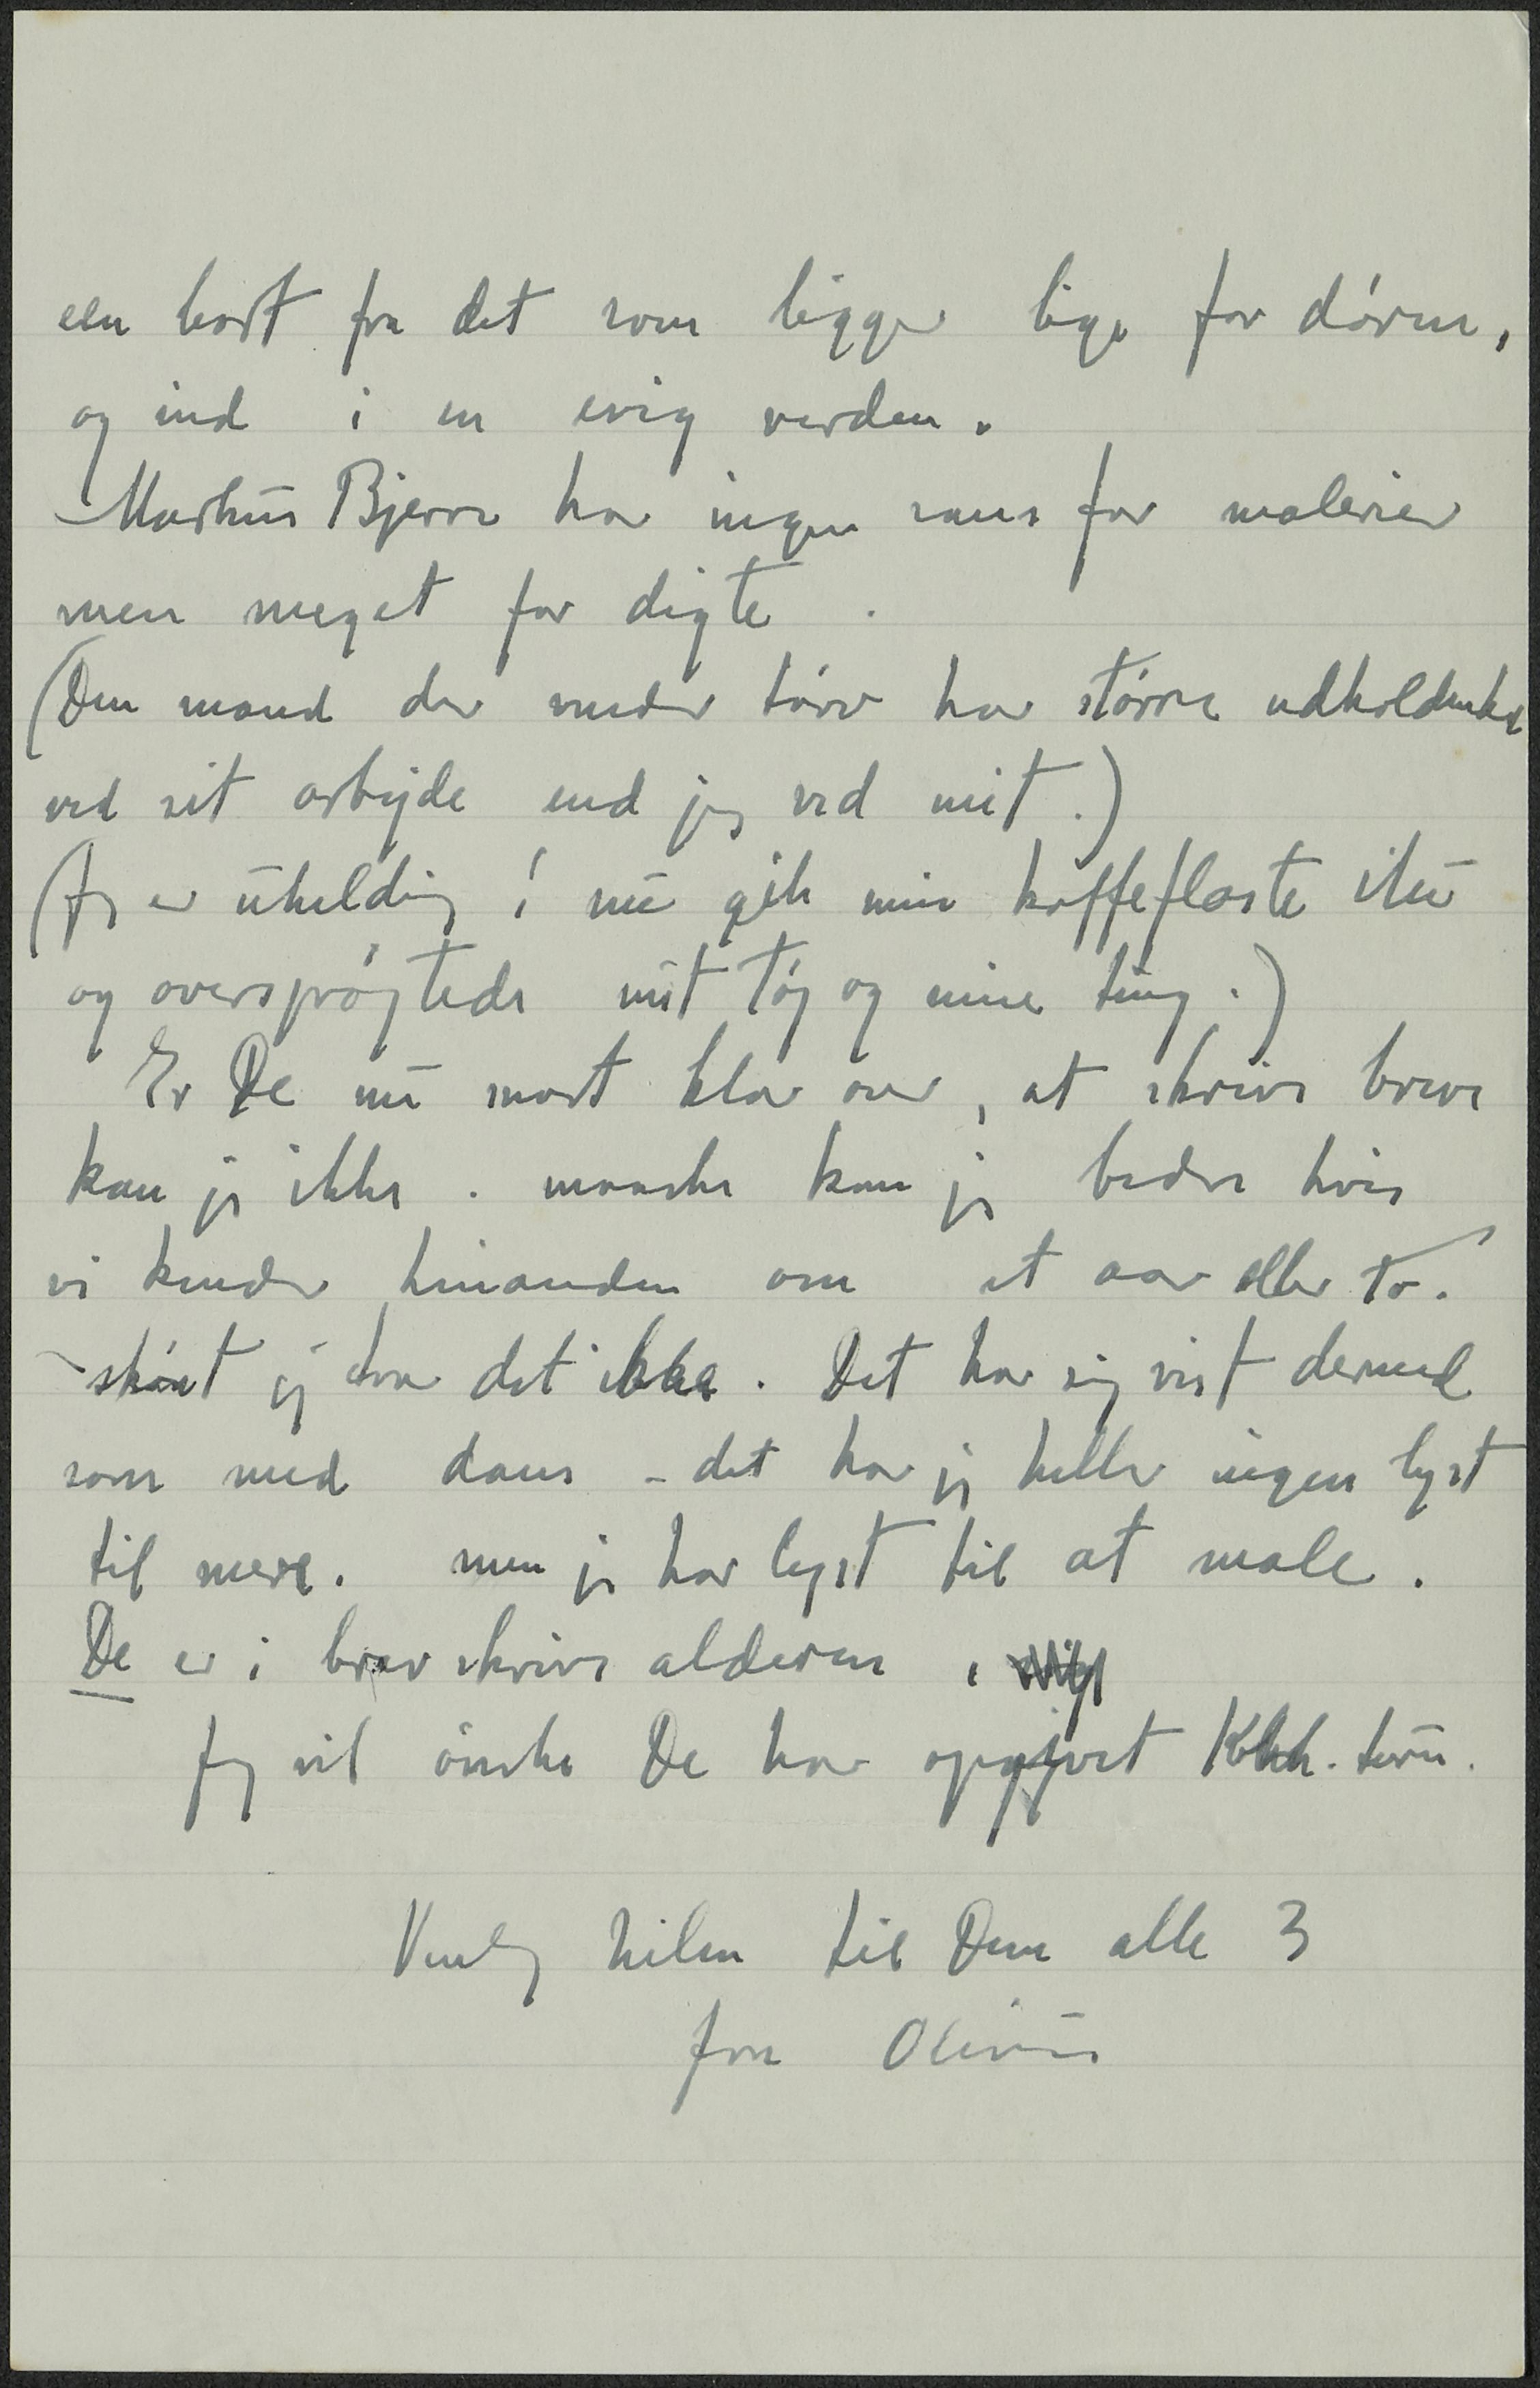 een bort fra det som ligger lige for døren,
og ind i en evig verden.
Markus Bjerre har ingen sans for malerier
men meget for digte.
(Den mand der vender tørv har større udholdenhed
ved sit arbejde end jeg ved mit.)
(Jeg er uheldig! nu gik min kaffeflaske itu
og oversprøjtede mit tøj og mine ting.)
Er De nu snart klar over, at skrive breve
kan jeg ikke. maaske kan jeg bedre hvis
vi kender hinanden om et aar eller to.
skønt jeg tror det ikke. Det har sig vist dermed
som med dans - det har jeg heller ingen lyst
til mere. men jeg har lyst til at male.
De er i brevskrive alderen,
Jeg vil ønske De har opgivet Kbh. turen.
Venlig hilsen til Dem alle 3
fra Olivius